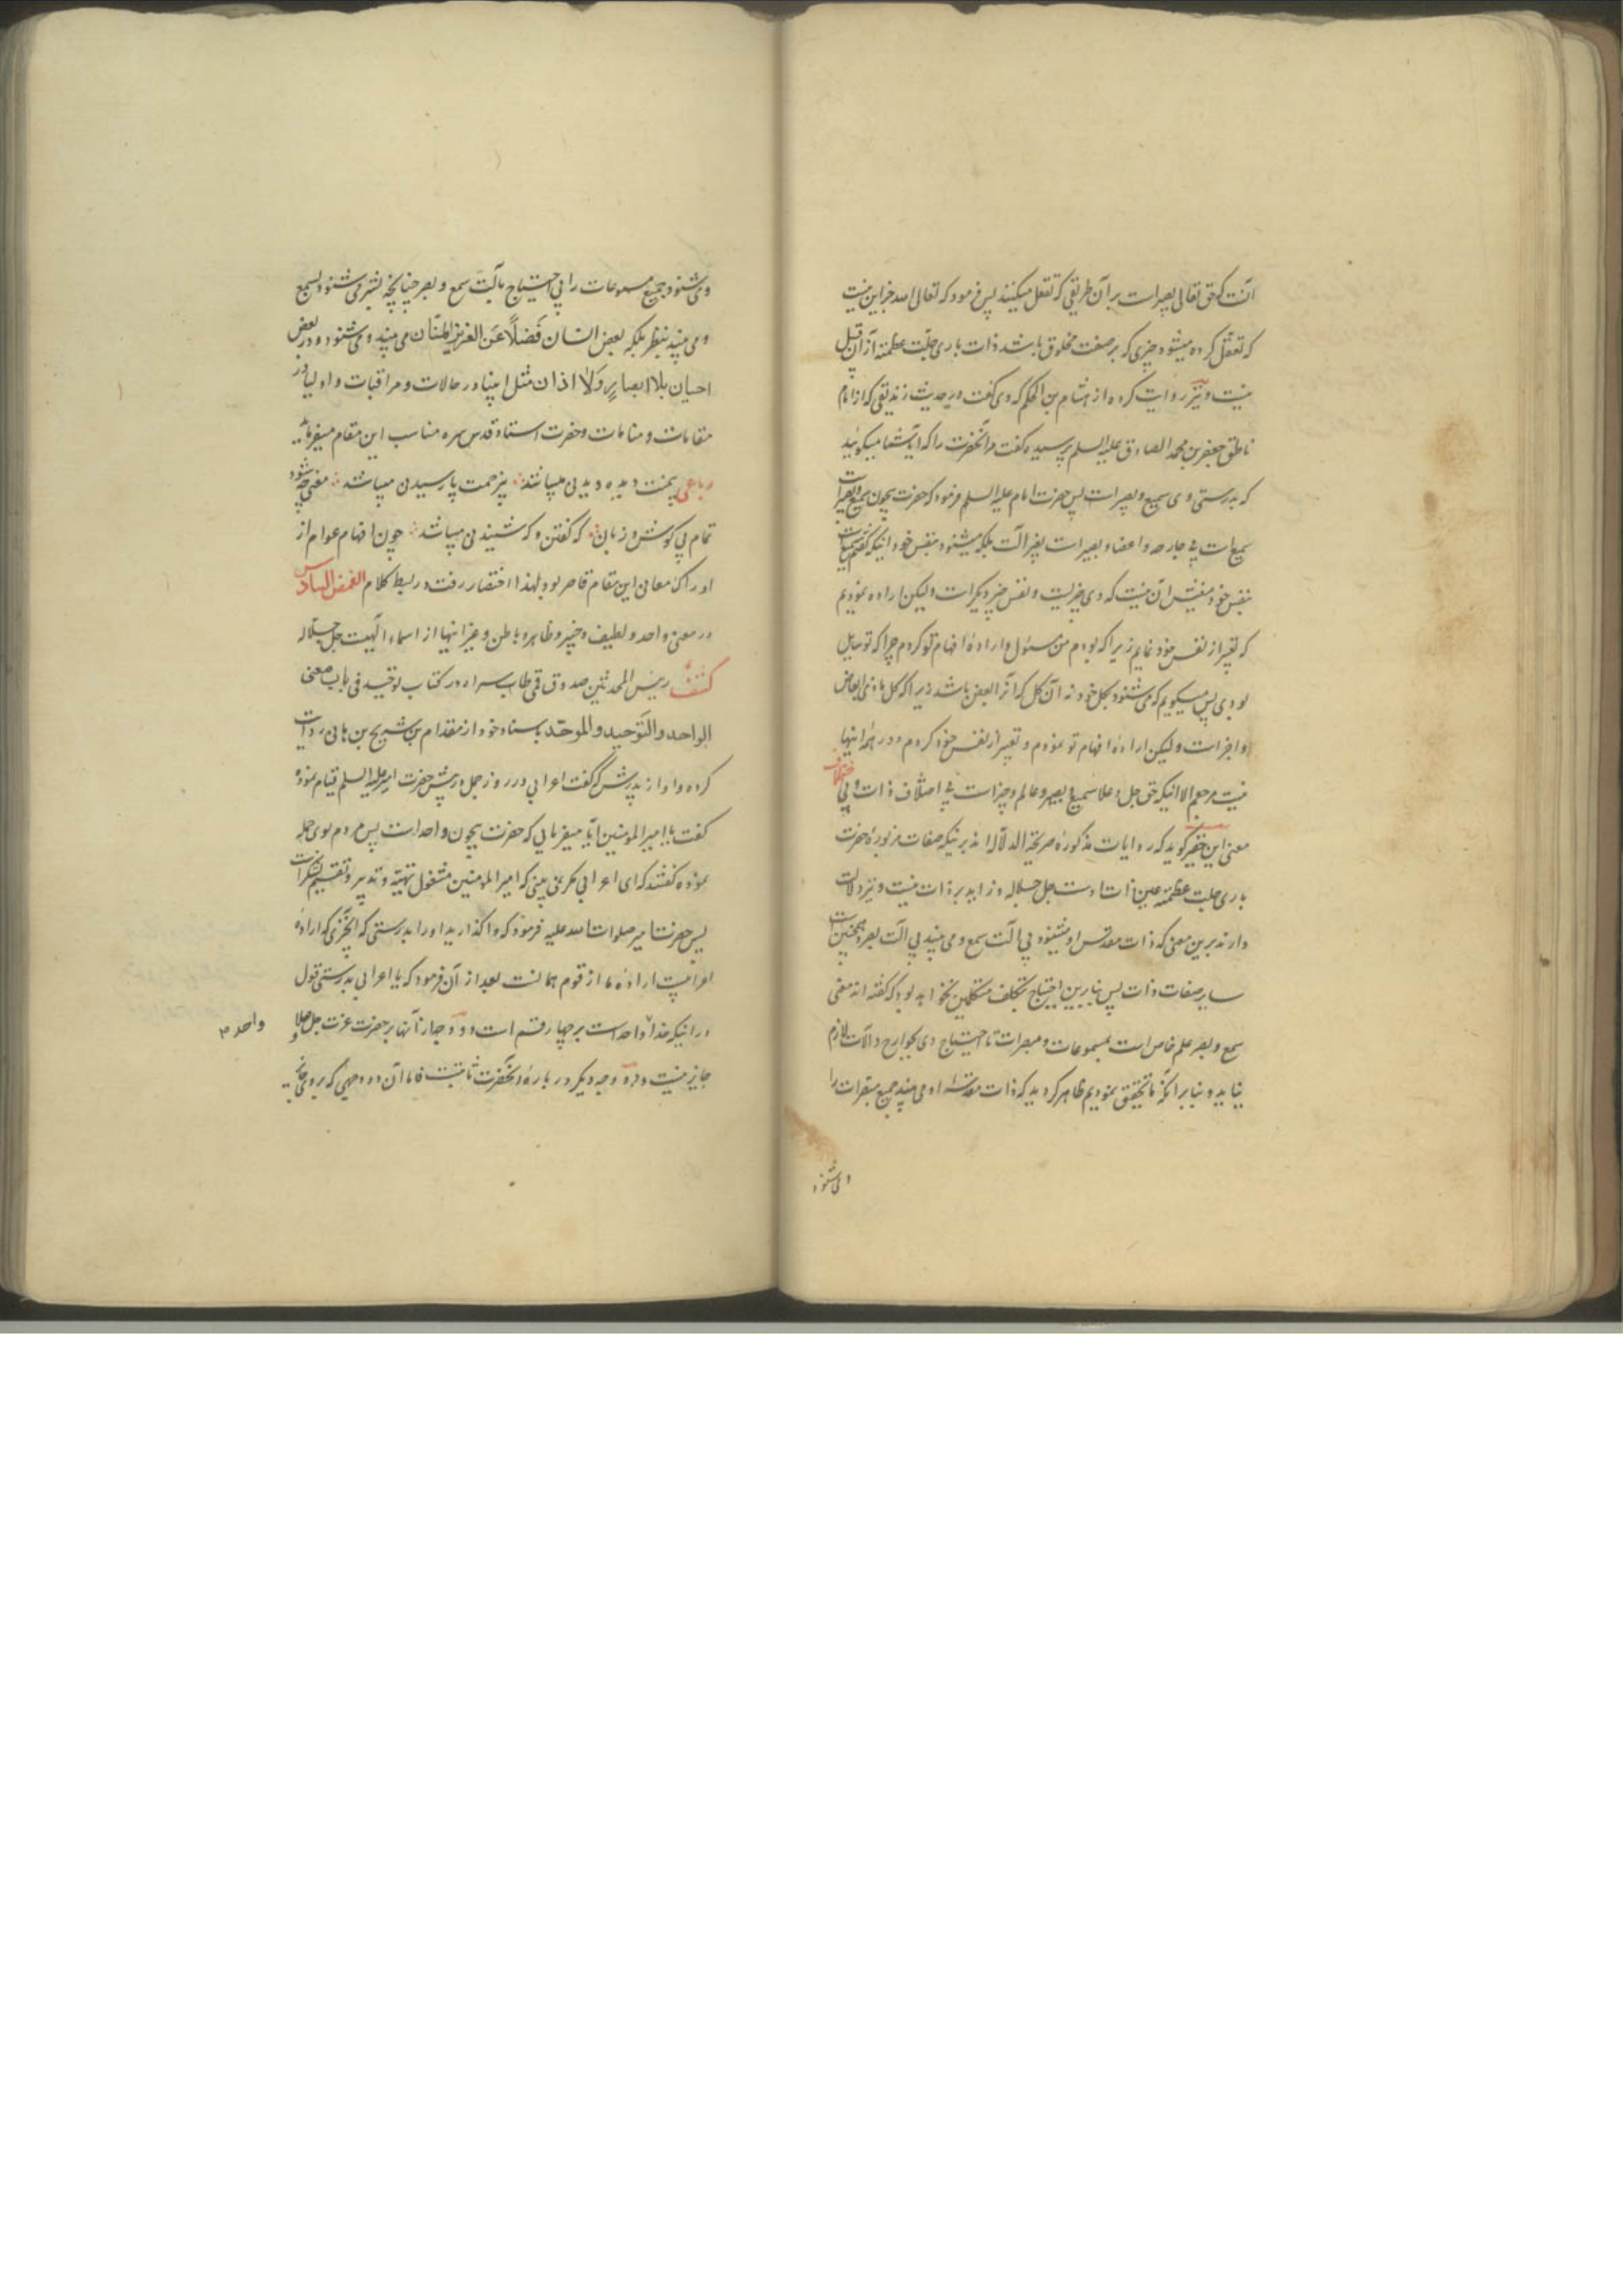 آنست که حق تعالی بصیر است بر آن طریقی که تعقل میکنند پس فرمود که تعالی الله جز این نیست
که تعقل کرده میشود چیزی که بر صفت مخلوق باشد و ذات باری جلت عظمته از آن قبیل
نیست و نیز روایت کرده از هشام بن الحکم که وی گفت در حدیث زندیقی که از امام
ناطق جعفر بن محمد الصادق علیه السلم پرسیده گفت مر آنحضرت را که آیا شما میگوئید
که بدرستی وی سمیع و بصیر است پس حضرت امام علیه السلم فرمود که حضرت بیچون سمیع و بصیر است
سمیع است بی جارحه و اعضا و بصیر است بغیر آلت بلکه میشنود بنفس خود اینکه گفتم سمیع است
بنفس خود معنیش آن نیست که وی چیزیست و نفس چیز دیگر است ولیکن اراده نمودیم
که تعبیر از نفس خود نمایم زیرا که بودم من مسئول و اراده افهام تو کردم چرا که تو سایل
بودی پس میگویم که می شنود بکل خود نه آن کل که آنرا بعض باشد زیرا که کل ما ذی ابعاض
و اجزاست ولیکن اراده افهام تو نمودم و تعبیر از نفس خود کردم و در همه اینها
نیست مرجعم الا اینکه حق جل و علا سمیع و بصیر و عالم و خبیر است بی اختلاف ذات و بی اختلاف
معنی این حقیر گوید که روایات مذکوره صریحة الدلاله اند برینکه صفات مزبوره حضرت
باری جلت عظمته عین ذات اوست جل جلاله و زاید بر ذات نیست و نیز دلالت
دارند برین معنی که ذات مقدس او میشنود بی آلت سمع و می بیند بی آلت بصر و همچنین است
سایر صفات ذات پس بنابرین احتیاج بتکلف متکلمین نخواهد بود که گفته اند معنی
سمع و بصر علم خاص است بمسموعات و مبصرات تا احتیاج وی بجوارح و آلات لازم
نیاید و بنابر آنکه ما تحقیق نمودیم ظاهر گردید که ذات مقدسه او می بیند جمیع مبصرات را
و می شنود
و می شنود جمیع مسموعات را بی احتیاج بآلت سمع و بصر چنانچه بشر می شنود بسمع
و می بیند بنظر بلکه بعض انسان فَضلاً عَن العزیز المنّان می بیند و می شنود و در بعض
احیان بلا ابصارٍ وَلاٰ اذان مثل انبیا در حالات و مراقبات و اولیا در
مقامات و منامات و حضرت استاد قدس سره مناسب این مقام میفرماید
رباعی بیمنت دیده دیدنی میباشد ؛ بیزحمت پا رسیدن میباشد ؛ معنی چو شود
تمام بی گوش و زبان ؛ که گفتن و که شنیدنی میباشد ؛ چون افهام عوام از
ادراک معانی این مقام قاصر بود لهذا اختصار رفت در بسط کلام الفصل السادس
در معنی واحد و لطیف و خبیر و ظاهر و باطن و غیر اینها از اسماء الهیت جل جلاله
کشف رییس المحدثین صدوق قمی طاب سراه در کتاب توحید فی باب معنی
الواحد و التَوحید و الموحّد باسناد خود از مقدام بن شریح بن هانی روایت
کرده و او از پدرش که گفت اعرابی در روز جمل در پیش حضرت امیر علیه السلم قیام نموده
گفت یا امیرالمومنین آیا میفرمایی که حضرت بیچون واحد است پس مردم بوی حمله
نموده گفتند که ای اعرابی مگر نمی بینی که امیرالمومنین مشغول تهیّه و تدبیر و تقسیم لشکر است
پس حضرت امیر صلوات الله علیه فرمود که واگذارید او را بدرستی که آنچیزی که اراده
اعرابیست اراده ما از قوم همانست بعد از آن فرمود که یا اعرابی بدرستی قول
در اینکه خدا واحد است بر چهار قسم است و دو وجه از آنها بر حضرت عزت جل و علا
واحد م
جایز نیست و دو وجه دیگر در باره آنحضرت ثابتست فاما آن دو وجهی که بر وی جایز